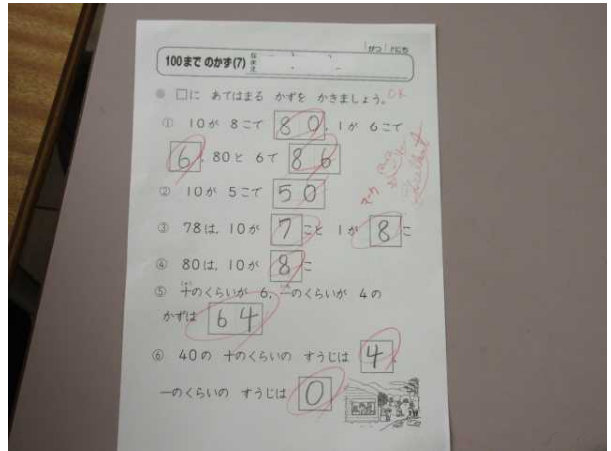 100まで のかず(7) なまえ
□に あてはまる かずを かきましょう。 OK
① 10が 8こで 80, 1が 6こで
6, 80と 6で 86
② 10が 5こで 50
③ 78は, 10が 7こと 1が 8こ
④ 80は, 10が 8こ
⑤ 十のくらいが 6, 一のくらいが 4の
かずは 64
⑥ 40の 十のくらいの すうじは 4,
一のくらいの すうじは 0